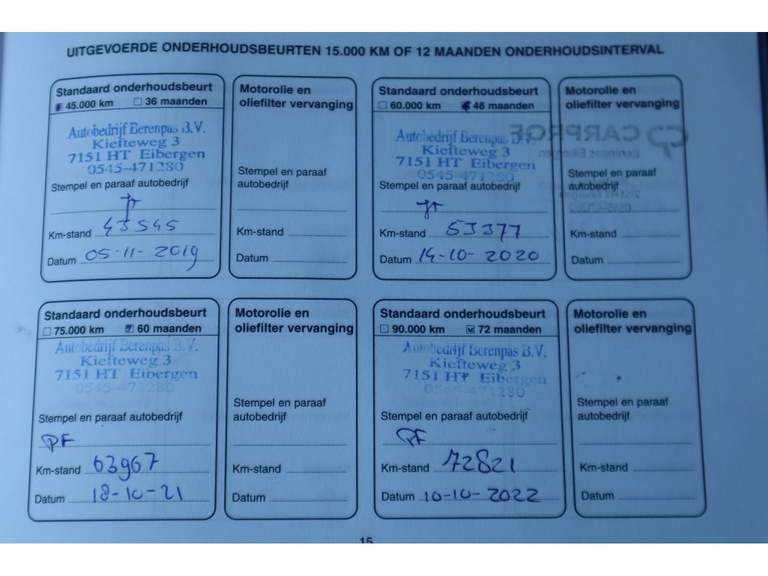 UITGEVOERDE ONDERHOUDSBEURTEN 15.000 KM OF 12 MAANDEN ONDERHOUDSINTERVAL
Standaard onderhoudsbeurt
45.000 km 36 maanden
Autobedrijf Berenpas B.V.
Kiefteweg 3
7151 HT Eibergen
0545-471280
Stempel en paraaf autobedrijf
Km-stand 43545
Datum 05-11-2019
Motorolie en
oliefilter vervanging
Stempel en paraaf
autobedrijf
Km-stand
Datum
Standaard onderhoudsbeurt
60.000 km 48 maanden
Autobedrijf Berenpas B.V.
Kiefteweg 3
7151 HT Eibergen
0545-471280
Stempel en paraaf autobedrijf
Km-stand 53377
Datum 14-10-2020
Motorolie en
oliefilter vervanging
CARPROF
Stempel en paraaf
autobedrijf
Km-stand
Datum
Standaard onderhoudsbeurt
75.000 km 60 maanden
Autobedrijf Berenpas B.V.
Kiefteweg 3
7151 HT Eibergen
0545-471280
Stempel en paraaf autobedrijf
PF
Km-stand 63967
Datum 18-10-21
Motorolie en
oliefilter vervanging
Stempel en paraaf
autobedrijf
Km-stand
Datum
Standaard onderhoudsbeurt
90.000 km 72 maanden
Autobedrijf Berenpas B.V.
Kiefteweg 3
7151 HT Eibergen
0545-471280
Stempel en paraaf autobedrijf
PF
Km-stand 72821
Datum 10-10-2022
Motorolie en
oliefilter vervanging
Stempel en paraaf
autobedrijf
Km-stand
Datum
15